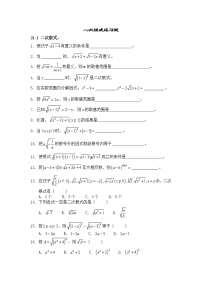 二次根式练习题
21.1 二次根式：
1. 使式子√(x-4)有意义的条件是
2. 当 时，√(x+2)+√(1-2x)有意义。
3. 若√(-m)+1/(m+1)有意义，则m的取值范围是
4. 当x 时，√((1-x)²)是二次根式。
5. 在实数范围内分解因式：x⁴-9= , x²-2√2x+2=
6. 若√(4x²)=2x，则x的取值范围是
7. 已知√((x-2)²)=2-x，则x的取值范围是
8. 化简：√(x²-2x+1)(x≺1)的结果是
9. 当1≤x≺5时，√((x-1)²)+|x-5|=
10. 把a√(-1/a)的根号外的因式移到根号内等于
11. 使等式√((x+1)(x-1))=√(x-1)√(x+1)成立的条件是
12. 若|a-b+1|与√(a+2b+4)互为相反数，则(a-b)²⁰⁰⁵=
次根式有（ ）
A. 2个 B. 3个 C. 4个 D. 5个
14. 下列各式一定是二次根式的是（ ）
A. √-7 B. ∛2m C. √(a²+1) D. √(a/b)
15. 若2≺a≺3，则√((2-a)²)-√((a-3)²)等于（ ）
A. 5-2a B. 1-2a C. 2a-5 D. 2a-1
16. 若A=√((a²+4)⁴)，则√A=（ ）
A. a²+4 B. a²+2 C. (a²+2)² D. (a²+4)²